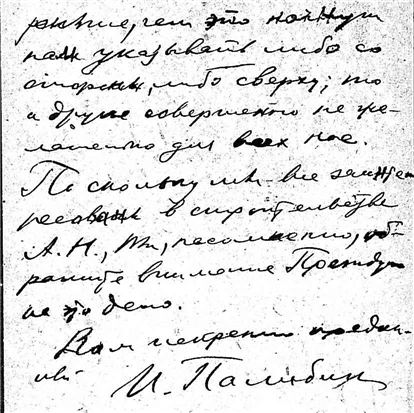 раньше, чем это начнут
нам указывать либо со
стороны, либо сверху; то
и другое совершенно не же-
лательно для всех нас.
Поскольку мы все заинте
ресованы в строительстве
А.Н., Вы, несомненно, об-
ратите внимание Президиума
на это дело.
Вам искренно предан-
ный
И. Палибин